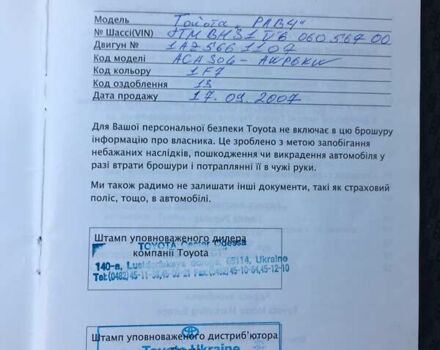 Модель Toйота „РАВ4"
№ Шассі(VIN) JTMBH31VB 060 567 00
Двигун № 1AZ 566 1107
Код моделі ACA30G- AWPGKW
Код кольору 1F7
Код оздоблення 13
Дата продажу 17. 09. 2007
Для Вашої персональної безпеки Toyota не включає в цю брошуру
інформацію про власника. Це зроблено з метою запобігання
небажаних наслідків, пошкодження чи викрадення автомобіля у
разі втрати брошури і потраплянні її в чужі руки.
Ми також радимо не залишати інші документи, такі як страховий
поліс, тощо, в автомобілі.
Штамп уповноваженого дилера
TOYOTA Center Odessa
компанії Toyota
140-a, 65114, Ukraine
Штамп уповноваженого дистриб'ютора
Toyota Ukraine